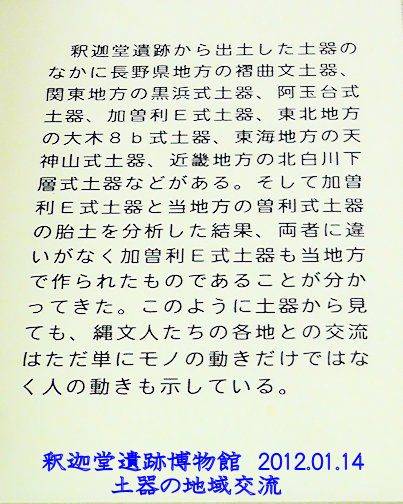 釈迦堂遺跡から出土した土器の
なかに長野県地方の褶曲文土器、
関東地方の黒浜式土器、阿玉台式
土器、加曽利E式土器、東北地方
の大木8b式土器、東海地方の天
神山式土器、近畿地方の北白川下
層式土器などがある。そして加曽
利E式土器と当地方の曽利式土器
の胎土を分析した結果、両者に違
いがなく加曽利E式土器も当地方
で作られたものであることが分か
ってきた。このように土器から見
ても、縄文人たちの各地との交流
はただ単にモノの動きだけではな
く人の動きも示している。
釈迦堂遺跡博物館 2012.01.14
土器の地域交流